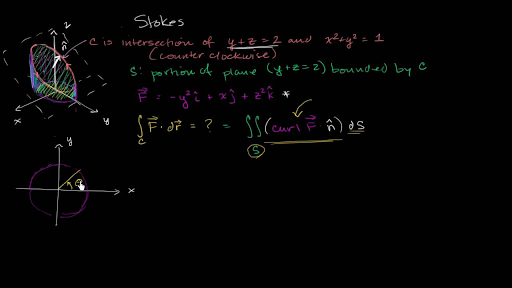 Stokes
z
n̂
C is intersection of y+z=2 and x²+y²=1
(counter clockwise)
S: portion of plane (y+z=2) bounded by C
x y
F⃗ = -y²î + xĵ + z²k̂ *
∫_C F⃗ · dr⃗ = ? = ∬_S (curl F⃗ · n̂) dS
y
x